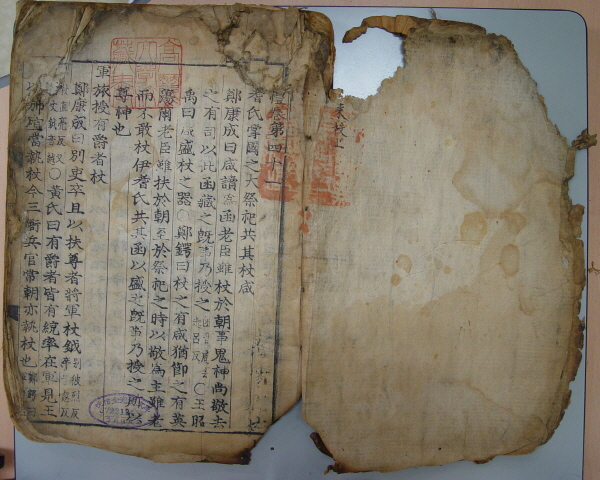 卷第四十一
耆氏掌國之大祭祀共其杖咸
鄭康成曰咸讀為函老臣雖杖於朝事鬼神尚敬去
之有司以此函藏之既事乃授之○王昭
禹曰咸盛杖之器○鄭鍔曰杖之有咸猶御之有
爾老臣雖扶於朝至於祭祀之時以敬為主雖老
而不敢杖伊耆氏共其函以盛之既事乃授之所以
尊神也
軍旅授有爵者杖
鄭康成曰別吏卒且以扶尊者將軍杖鉞別彼列反
○黃氏曰有爵者皆有統率在軍見王
杖今三衙兵官常朝亦挑杖也鄭鍔曰